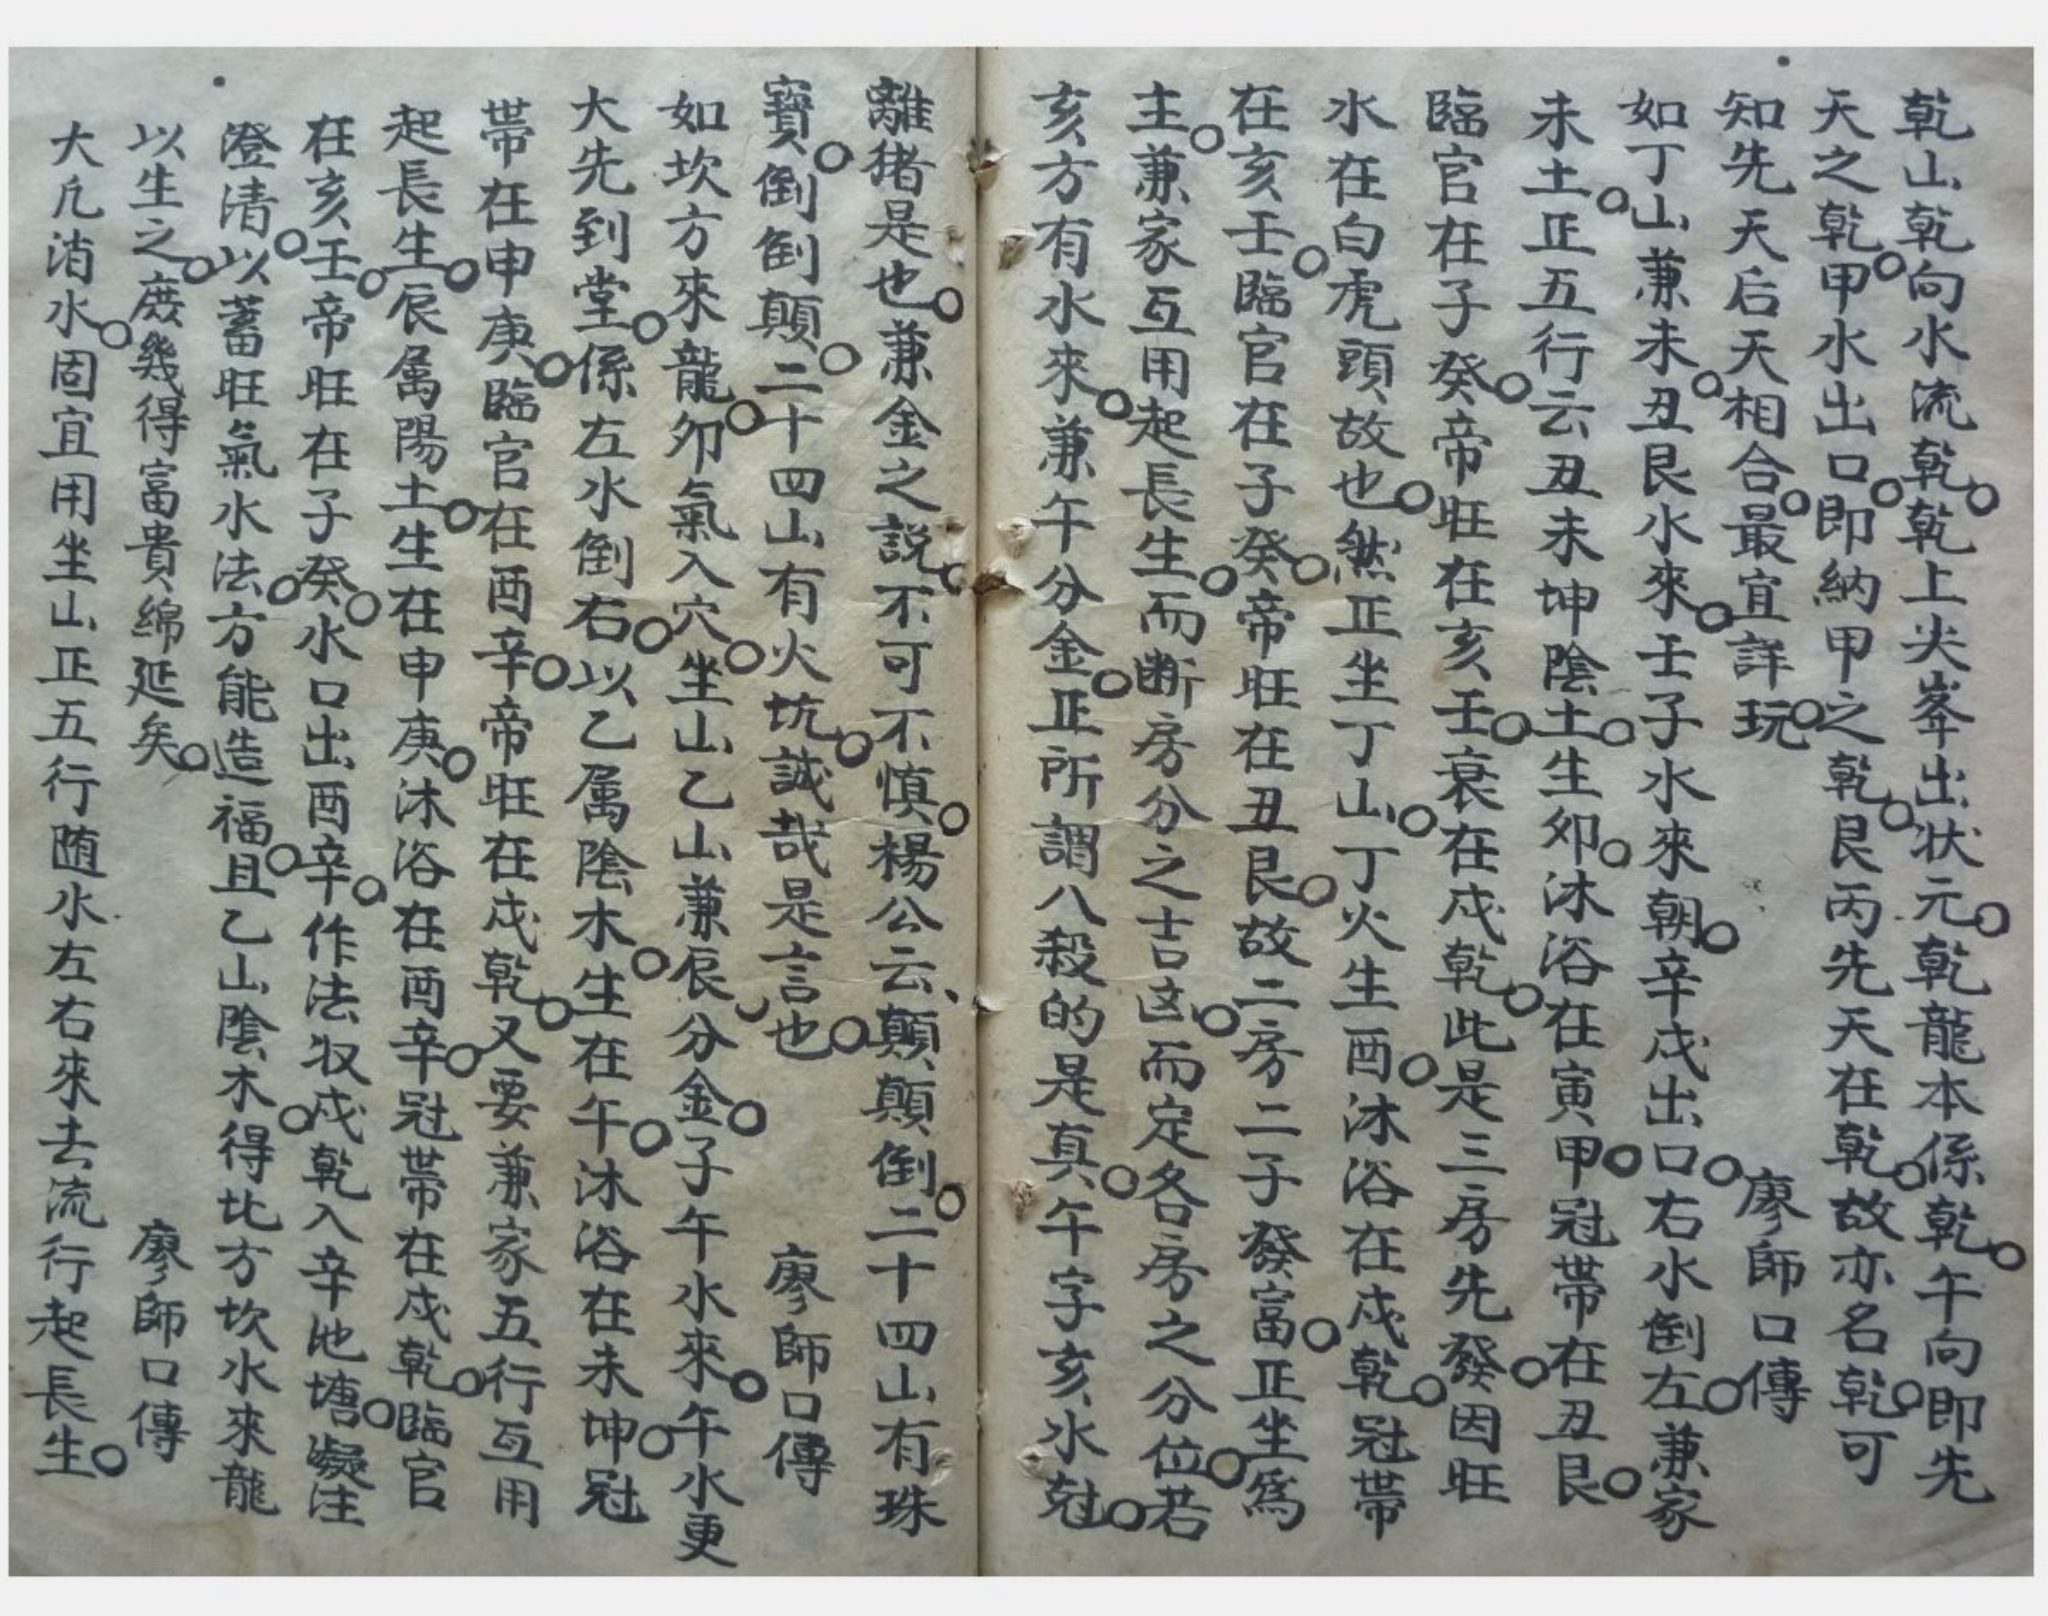 乾山乾向水流乾。乾上尖峯出状元。乾龍本係乾。午向即先
天之乾。甲水出口。即納甲之乾。艮丙先天在乾。故亦名乾。可
知先天后天相合。最宜詳玩。廖師口傳
如丁山兼未。丑艮水來。壬子水來朝。辛戌出口。右水倒左。兼家
未土。正五行云丑未坤陰土。生卯。沐浴在寅甲。冠帶在丑艮。
臨官在子癸。帝旺在亥壬。衰在戌乾。此是三房先發。因旺
水在白虎頭故也。然正坐丁山。丁火生酉。沐浴在戌乾。冠帶
在亥壬。臨官在子癸。帝旺在丑艮。故二房二子發富。正坐爲
主。兼家互用起長生。而断房分之吉凶。而定各房之分位。若
亥方有水來。兼午分金。正所謂八殺的是真。午字亥水尅。
離猪是也。兼金之説。不可不慎。楊公云、顛顛倒。二十四山有珠
寶。倒倒顛。二十四山有火坑。誠哉是言也。廖師口傳
如坎方來龍。卯氣入穴。坐山乙山兼辰分金。子午水來。午水更
大先到堂。係左水倒右。以乙属陰木。生在午。沐浴在未坤。冠
帶在申庚。臨官在酉辛。帝旺在戌乾。又要兼家五行互用
起長生。辰属陽土。生在申庚。沐浴在酉辛。冠帶在戌乾。臨官
在亥壬。帝旺在子癸。水口出酉辛。作法収戌乾入辛池塘。凝注
澄清。以蓄旺氣水法。方能造福。且乙山陰木。得比方坎水來龍
以生之。庶幾得富貴綿延矣。廖師口傳
大凡消水。固宜用坐山正五行随水左右來去流行起長生。